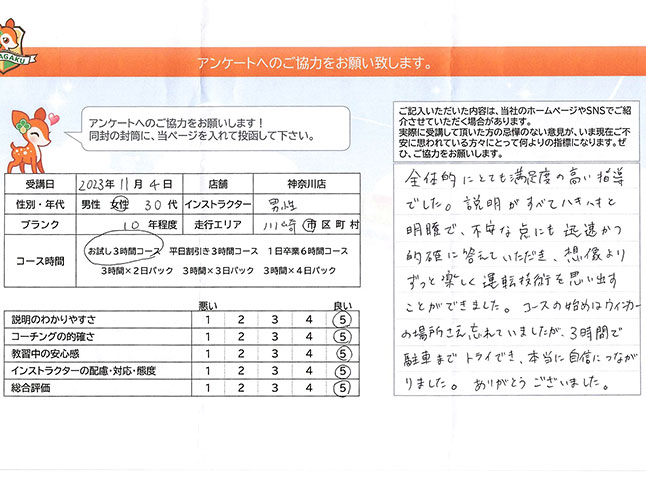 AGAKU
アンケートへのご協力をお願い致します。
アンケートへのご協力をお願いします!
同封の封筒に、当ページを入れて投函して下さい。
受講日 2023年11月4日 店舗 神奈川店
性別・年代 男性 女性 30代 インストラクター 男性
ブランク 10年程度 走行エリア 川崎 市区町村
コース時間 お試し3時間コース 平日割引き3時間コース 1日卒業6時間コース
3時間×2日パック 3時間×3日パック 3時間×4日パック
悪い 良い
説明のわかりやすさ 1 2 3 4 5
コーチングの的確さ 1 2 3 4 5
教習中の安心感 1 2 3 4 5
インストラクターの配慮・対応・態度 1 2 3 4 5
総合評価 1 2 3 4 5
ご記入いただいた内容は、当社のホームページやSNSでご紹
介させていただく場合があります。
実際に受講して頂いた方の忌憚のない意見が、いま現在ご不
安に思われている方々にとって何よりの指標になります。ぜ
ひ、ご協力をお願いします。
全体的にとても満足度の高い指導
でした。説明がすべてハキハキと
明瞭で、不安な点にも迅速かつ
的確に答えていただき、想像より
ずっと楽しく運転技術を思い出す
ことができました。コースの始めはウィンカー
の場所さえ忘れていましたが、3時間で
駐車までトライでき、本当に自信につなが
りました。ありがとうございました。